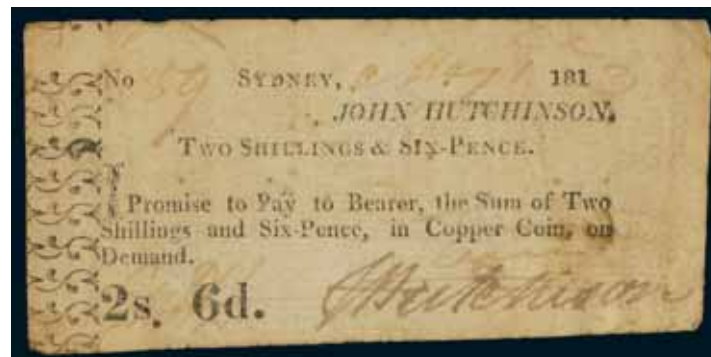 No SYDNEY, 181
JOHN HUTCHINSON.
TWO SHILLINGS & SIX-PENCE.
I Promise to Pay to Bearer, the Sum of Two
Shillings and Six-Pence, in Copper Coin, on
Demand.
2s. 6d. JHutchinson